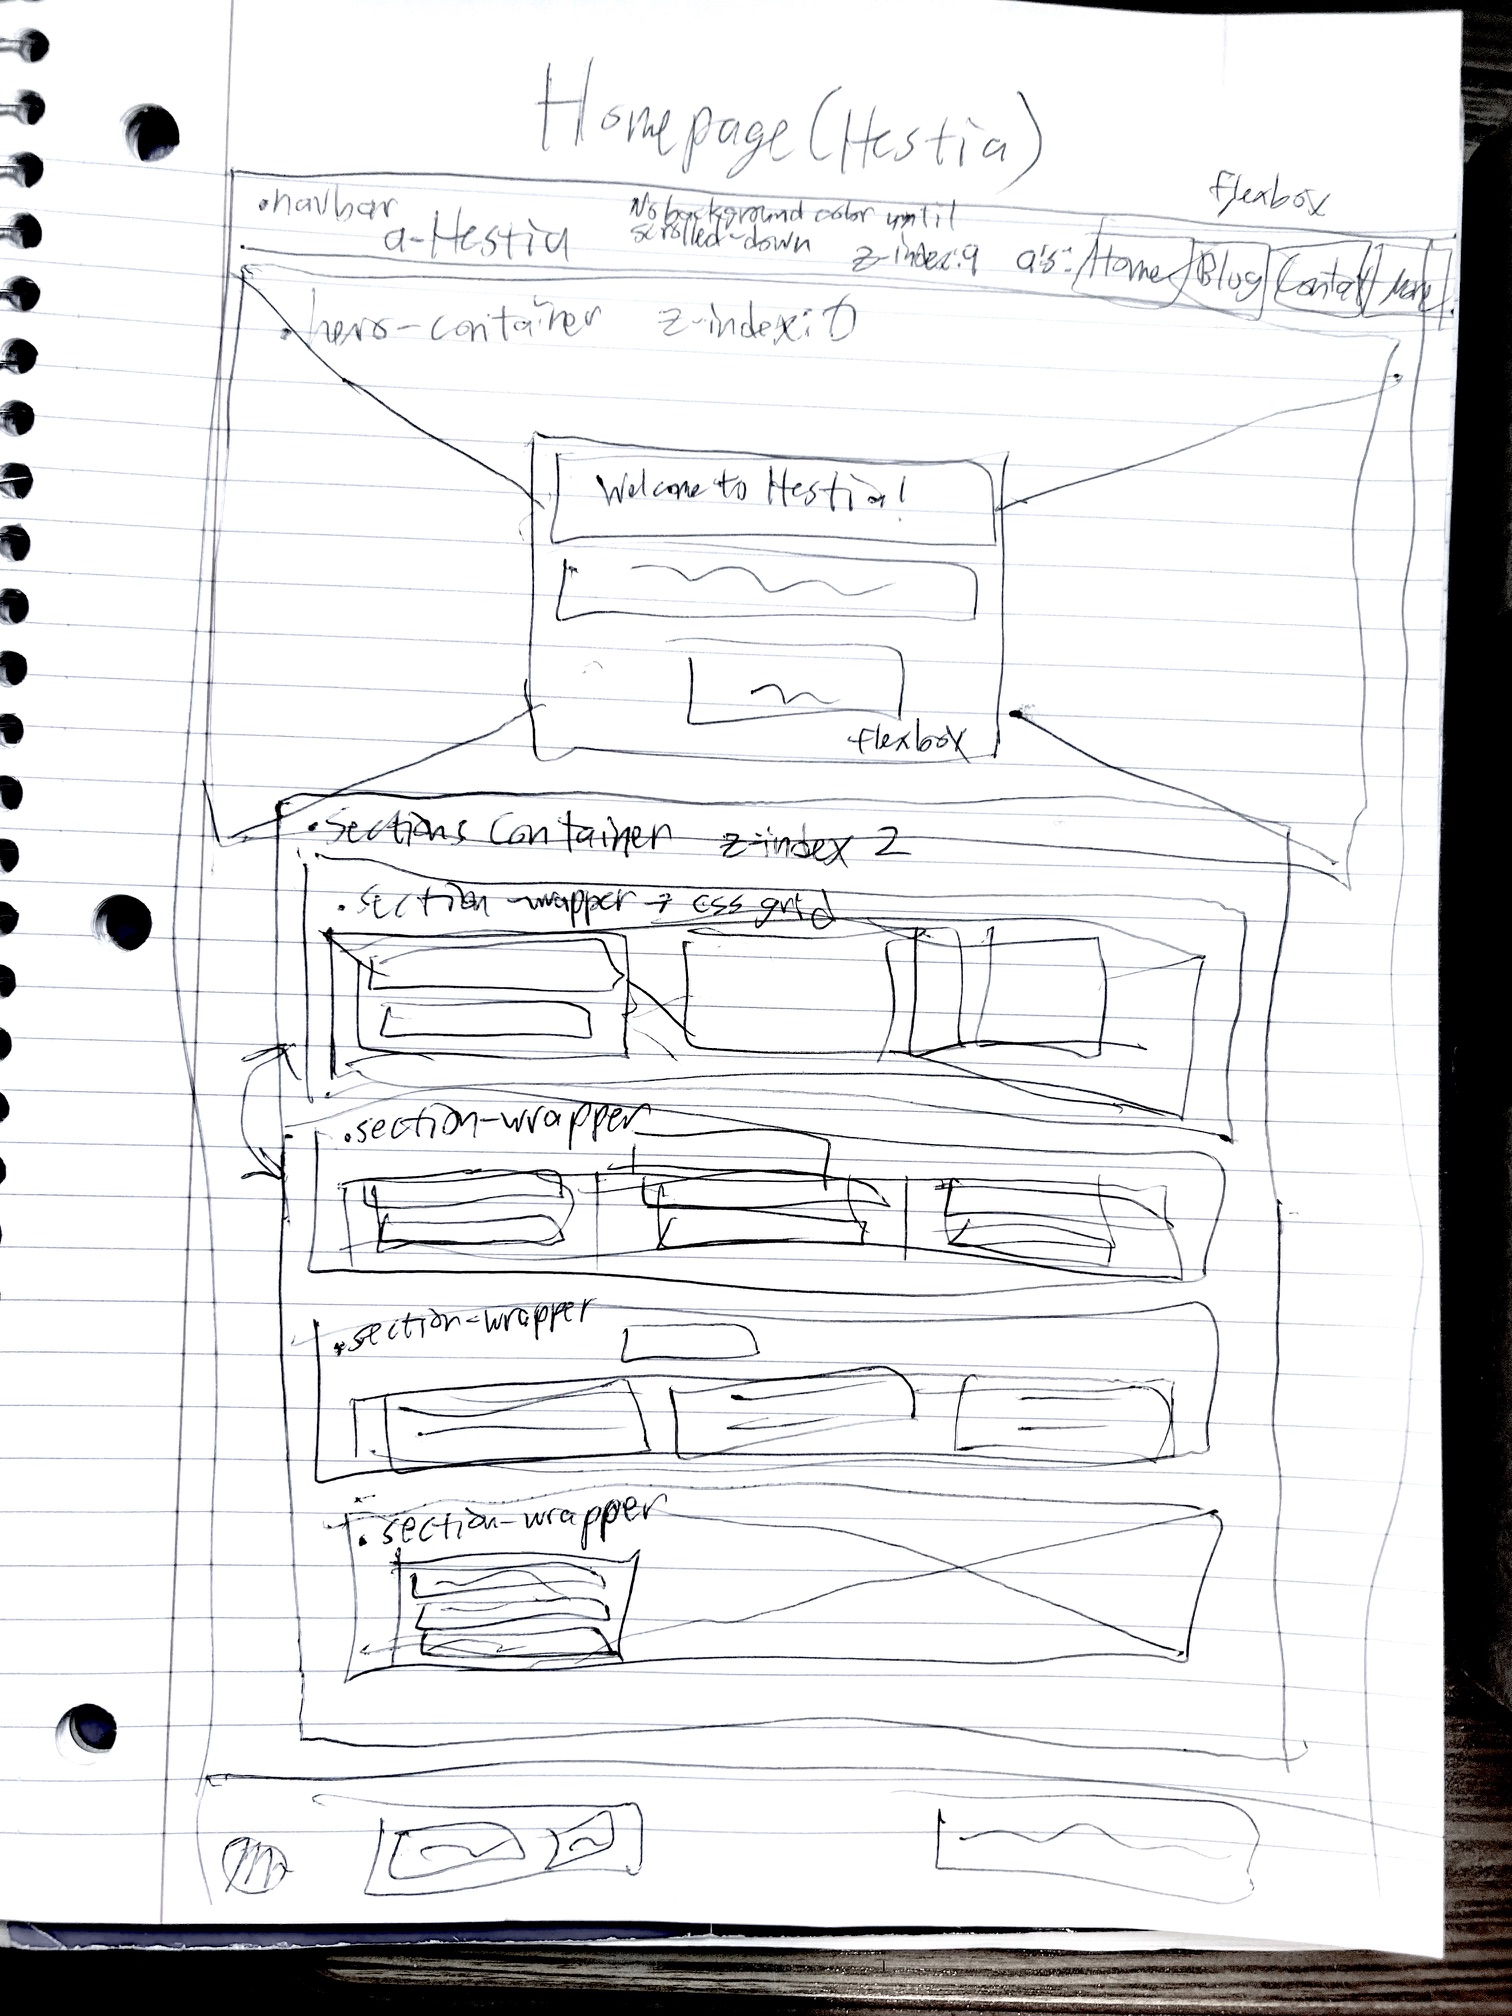 Homepage (Hestia)
flexbox
.navbar
a-Hestia
No background color until
scrolled-down
z-index:9
a's:
Home
Blog
Contact
More
.hero-container z-index: 0
Welcome to Hestia!
flexbox
.sections container z-index 2
.section-wrapper → css grid
.section-wrapper
.section-wrapper
.section-wrapper